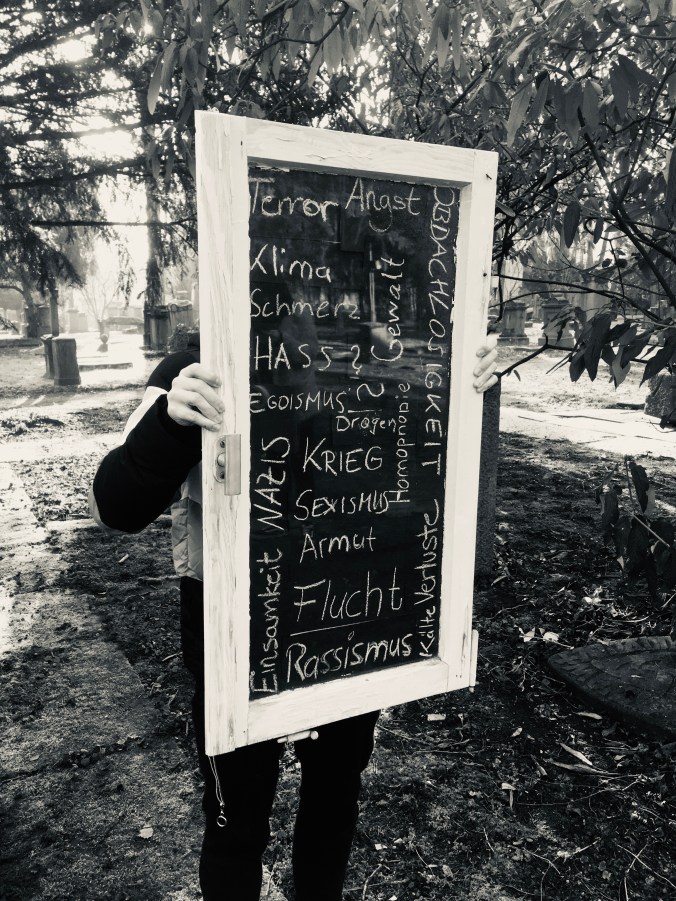 Terror Angst
Klima
Schmerz
HASS?
EGOISMUS
Drogen
KRIEG
SEXISMUS
Armut
Flucht
Rassismus
NAZIS
Einsamkeit
Gewalt
Homophobie
OBDACHLOSIGKEIT
Verluste
Kälte